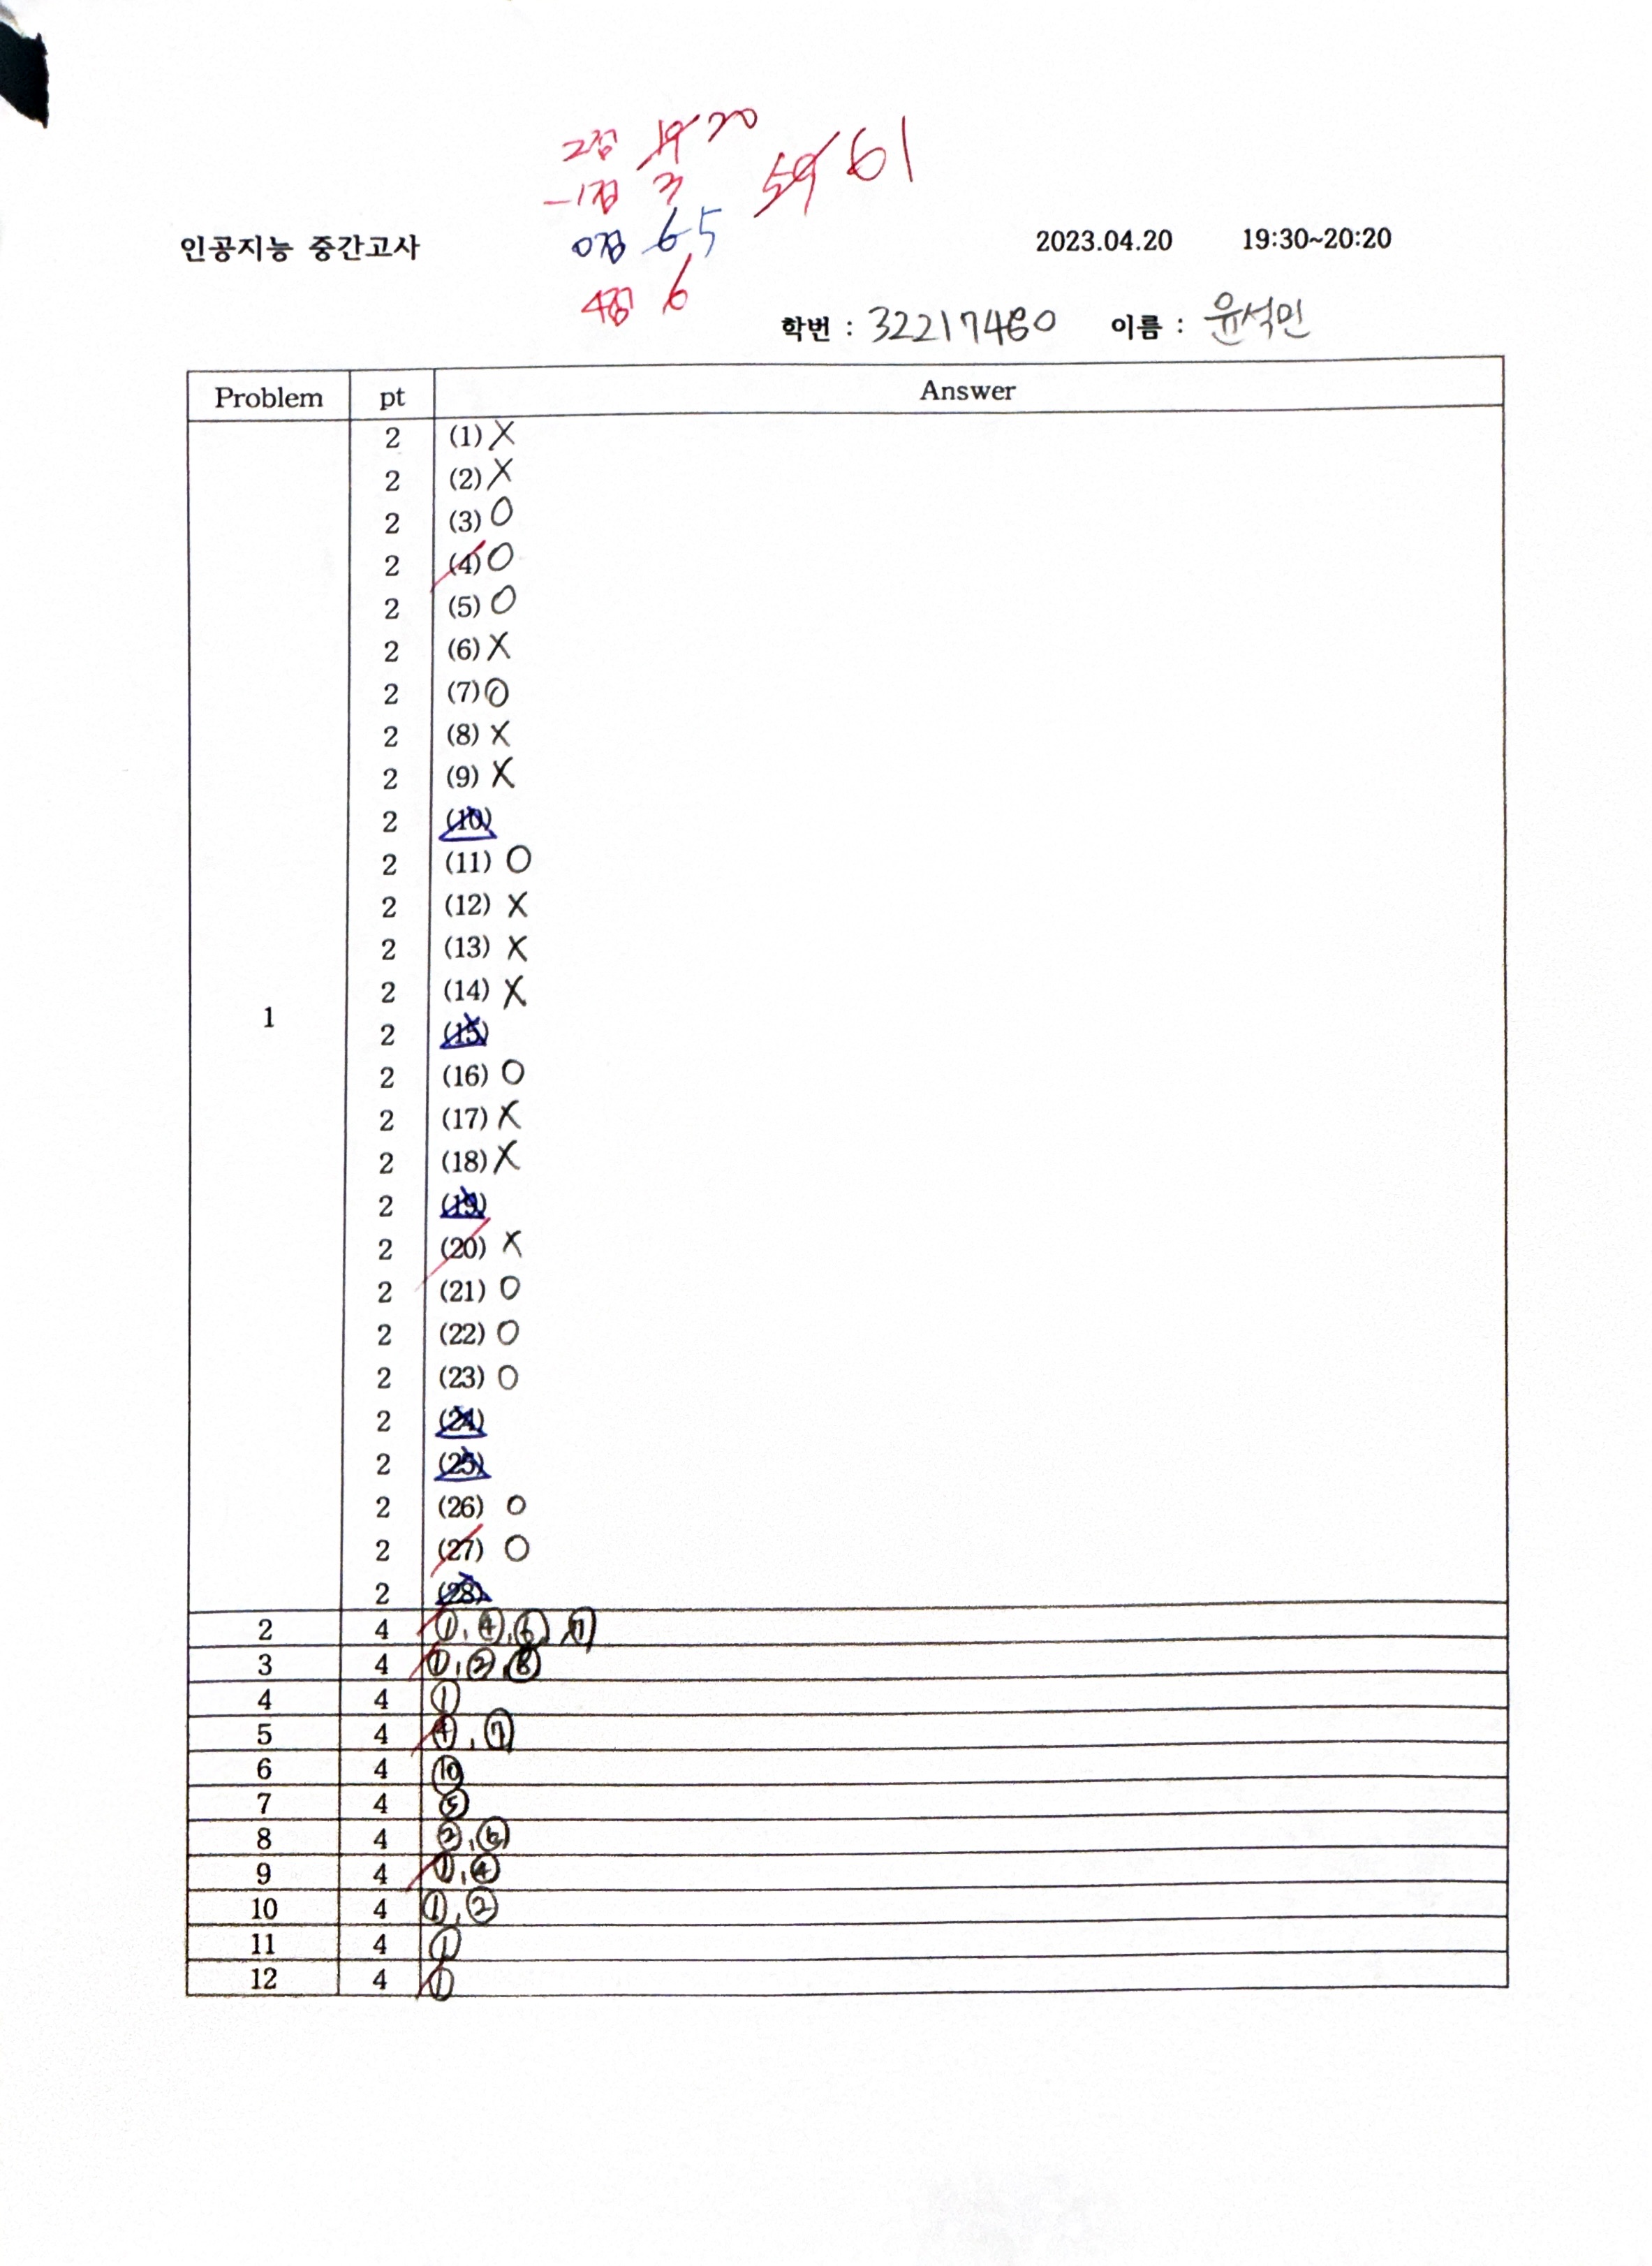 2점 19 20
-1점 3 59 61
인공지능 중간고사 0점 6 5 2023.04.20 19:30~20:20
4점 6
학번 : 32217460 이름 : 윤석민
Problem pt Answer
2 (1) X
2 (2) X
2 (3) O
2 (4) O
2 (5) O
2 (6) X
2 (7) O
2 (8) X
2 (9) X
2 (10)
2 (11) O
2 (12) X
2 (13) X
2 (14) X
1
2 (15)
2 (16) O
2 (17) X
2 (18) X
2 (19)
2 (20) X
2 (21) O
2 (22) O
2 (23) O
2 (24)
2 (25)
2 (26) O
2 (27) O
2 (28)
2 4 ①, ④, ⑥, ⑦
3 4 ①, ②, ⑧
4 4 ①
5 4 ④, ⑦
6 4 ⑩
7 4 ⑤
8 4 ②, ⑥
9 4 ①, ④
10 4 ①, ②
11 4 ①
12 4 ①